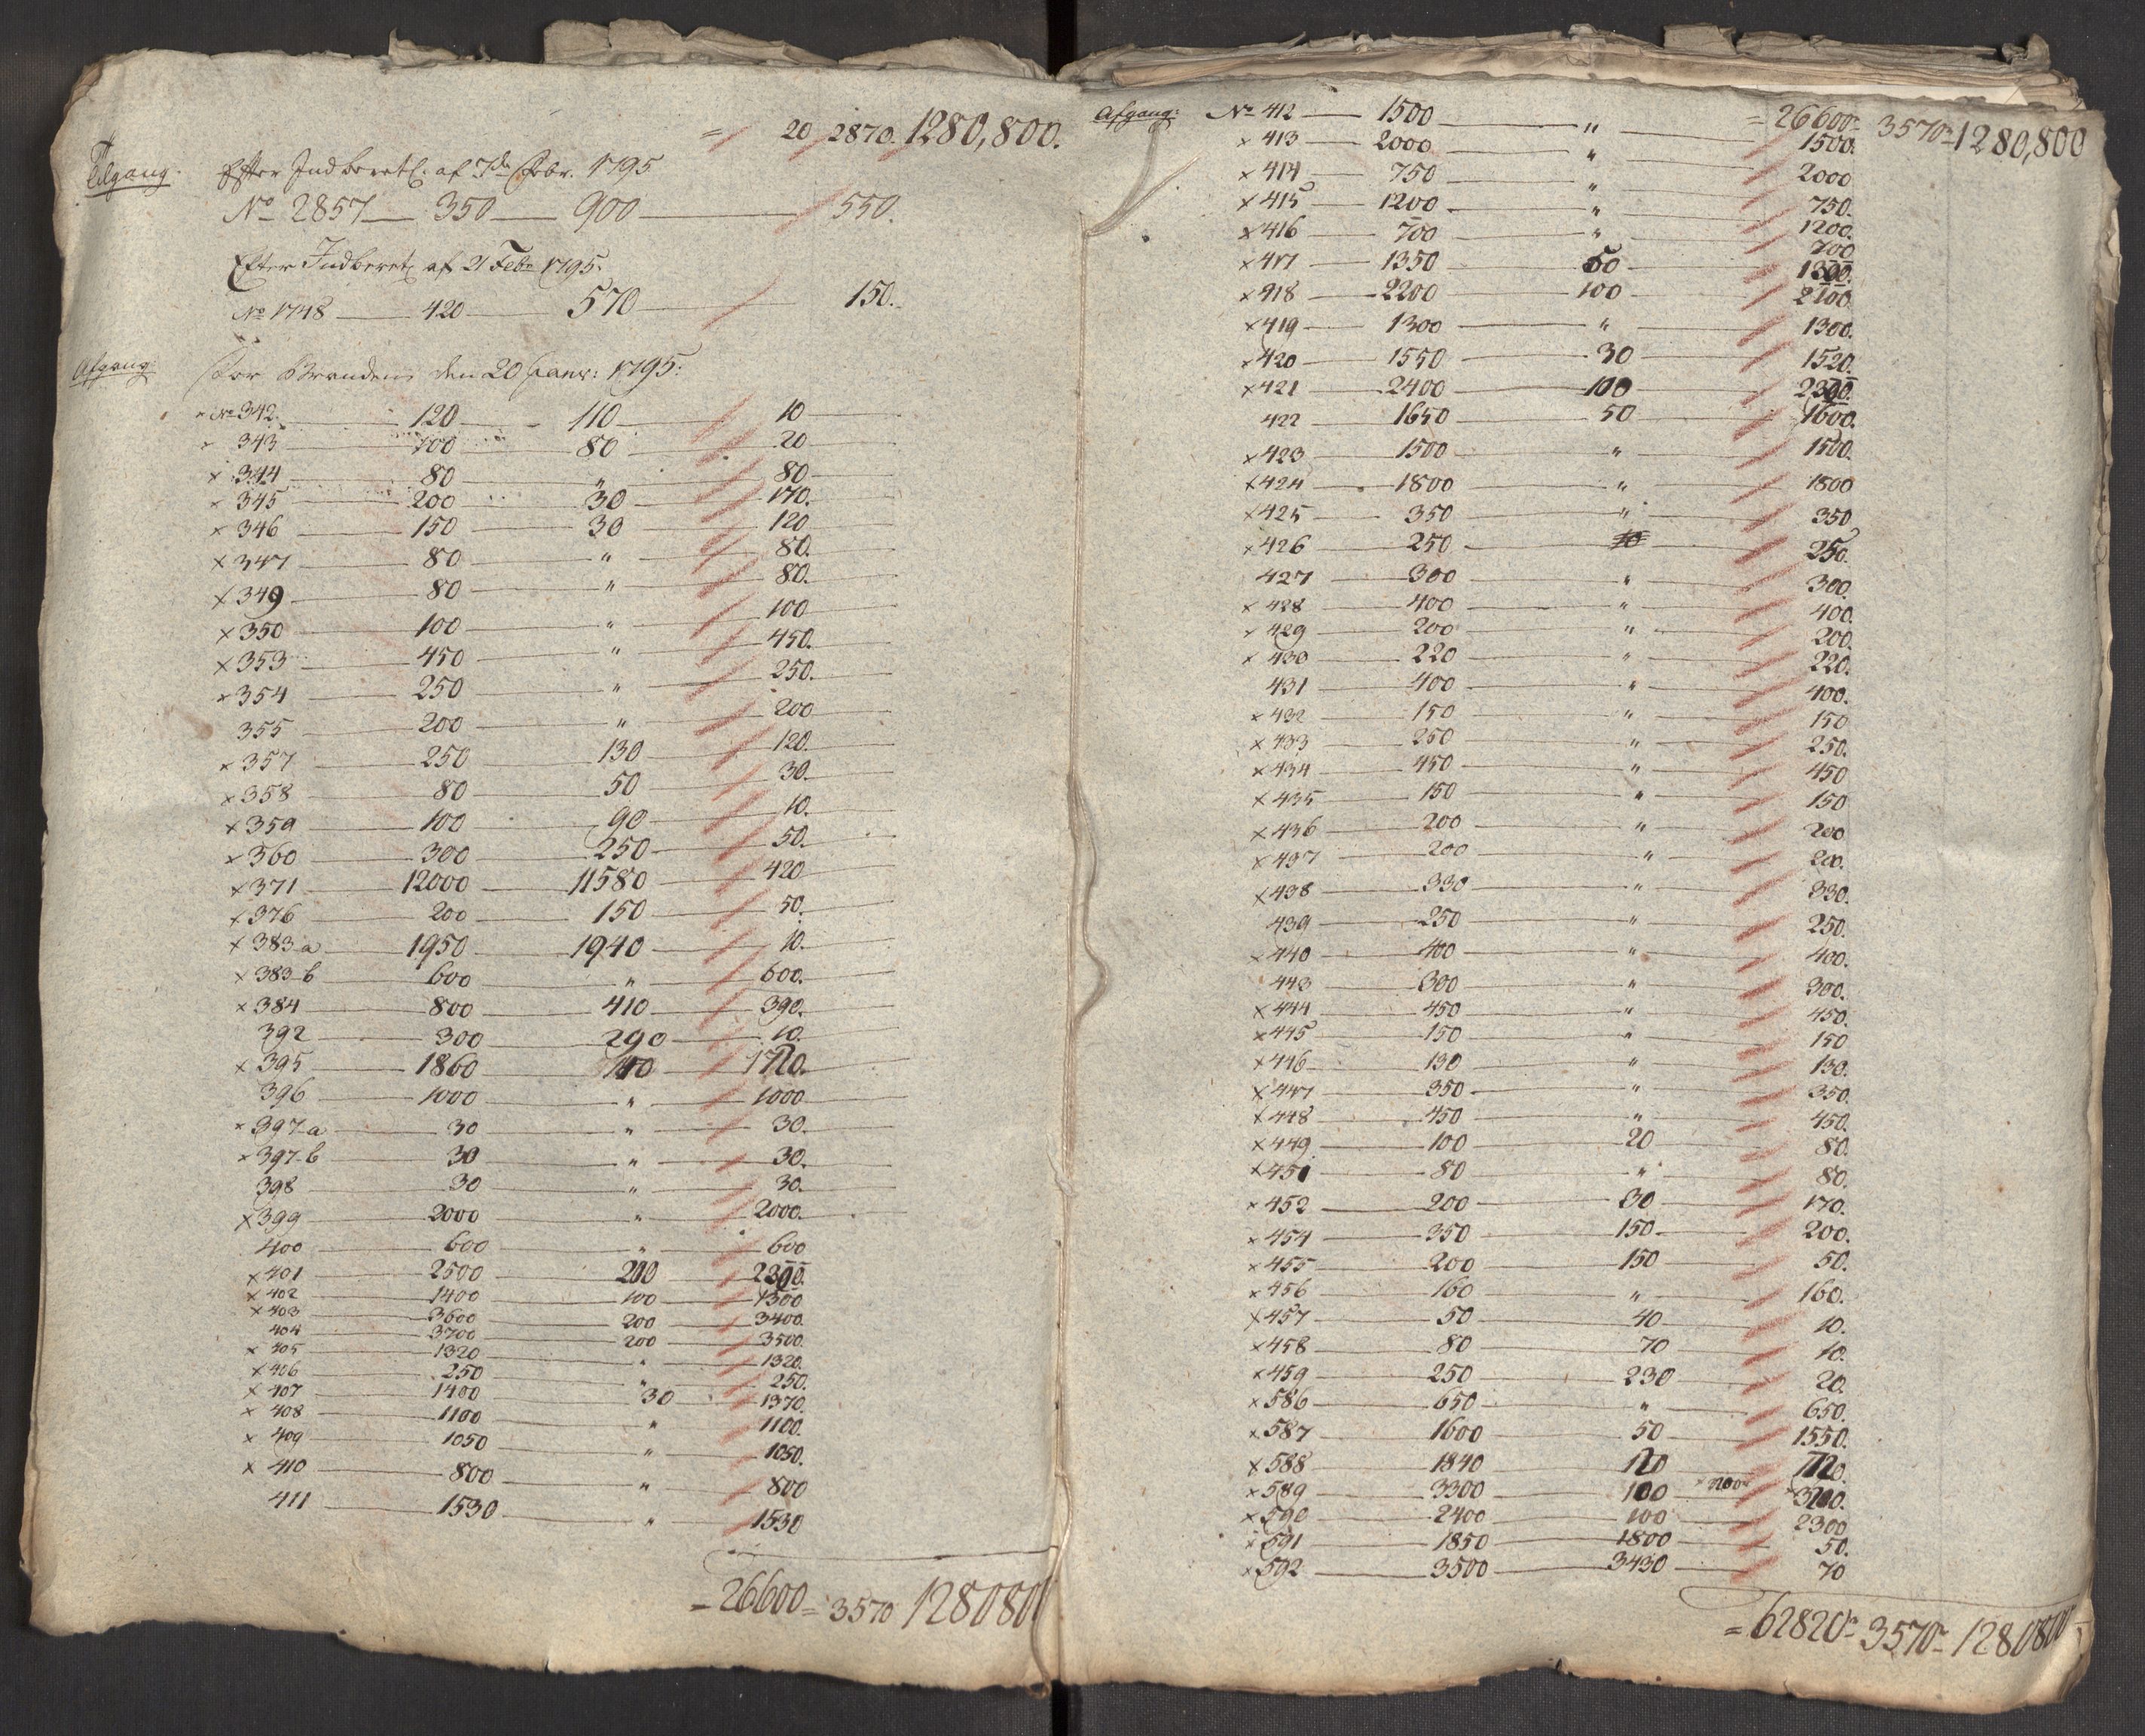 = 20 2870. 1280,800.
Tilgang. Efter Indberetn. af 7de Febr. 1795
No 2857 — 350 — 900 — 550.
Efter Indberetn. af 21 Febr 1795.
No 1748 — 420 — 570 — 150.
Afgang: for Branden den 20 Janr: 1795:
No 342 — 120 — 110 — 10
343 — 100 — 80 — 20
x 344 — 80 — " — 80
x 345 — 200 — 30 — 170.
x 346 — 150 — 30 — 120
x 347 — 80 — " — 80.
x 349 — 80 — " — 80.
x 350 — 100 — " — 100
x 353 — 450 — " — 450.
x 354 — 250 — " — 250.
355 — 200 — " — 200
x 357 — 250 — 130 — 120.
x 358 — 80 — 50 — 30.
x 359 — 100 — 90 — 10.
x 360 — 300 — 250 — 50.
x 371 — 12000 — 11580 — 420
x 376 — 200 — 150 — 50.
x 383-a — 1950 — 1940 — 10.
x 383-b — 600 — " — 600.
x 384 — 800 — 410 — 390.
392 — 300 — 290 — 10.
x 395 — 1860 — 140 — 1720.
396 — 1000 — " — 1000
x 397-a — 30 — " — 30.
x 397-b — 30 — " — 30.
398 — 30 — " — 30.
x 399 — 2000 — " — 2000.
400 — 600 — " — 600
x 401 — 2500 — 200 — 2300.
x 402 — 1400 — 100 — 1300
x 403 — 3600 — 200 — 3400.
404 — 3700 — 200 — 3500.
x 405 — 1320 — " — 1320.
x 406 — 250 — " — 250.
x 407 — 1400 — 30 — 1370.
x 408 — 1100 — " — 1100.
x 409 — 1050 — " — 1050.
x 410 — 800 — " — 800
411 — 1530 — " — 1530
= 26600 = 3570 128080
Afgang: No 412 — 1500 — " — = 26600 = 3570 = 1280,800
1500.
x 413 — 2000 — " — 2000
x 414 — 750 — " — 750.
x 415 — 1200 — " — 1200.
x 416 — 700 — " — 700
x 417 — 1350 — 50 — 1300.
x 418 — 2200 — 100 — 2100.
x 419 — 1300 — " — 1300.
x 420 — 1550 — 30 — 1520.
x 421 — 2400 — 100 — 2300.
422 — 1650 — 50 — 1600.
x 423 — 1500 — " — 1500.
x 424 — 1800 — " — 1800
x 425 — 350 — " — 350
x 426 — 250 — 10 — 250.
427 — 300 — " — 300.
x 428 — 400 — " — 400.
x 429 — 200 — " — 200.
x 430 — 220 — " — 220.
431 — 400 — " — 400.
x 432 — 150 — " — 150
x 433 — 250 — " — 250.
x 434 — 450 — " — 450
x 435 — 150 — " — 150
x 436 — 200 — " — 200
x 437 — 200 — " — 200.
x 438 — 330 — " — 330.
439 — 250 — " — 250.
x 440 — 400 — " — 400.
443 — 300 — " — 300.
x 444 — 450 — " — 450.
x 445 — 150 — " — 150
x 446 — 130 — " — 130.
x 447 — 350 — " — 350.
x 448 — 450 — " — 450.
x 449 — 100 — 20 — 80.
x 451 — 80 — " — 80.
x 452 — 200 — 30 — 170.
x 454 — 350 — 150 — 200.
x 455 — 200 — 150 — 50.
x 456 — 160 — " — 160.
x 457 — 50 — 40 — 10.
x 458 — 80 — 70 — 10.
x 459 — 250 — 230 — 20.
x 586 — 650 — " — 650.
x 587 — 1600 — 50 — 1550.
x 588 — 1840 — 120 — 1720.
x 589 — 3300 — 100 x 200 x 3100.
x 590 — 2400 — 100 — 2300
x 591 — 1850 — 1800 — 50.
x 592 — 3500 — 3430 — 70
= 62820 = 3570 = 1280800